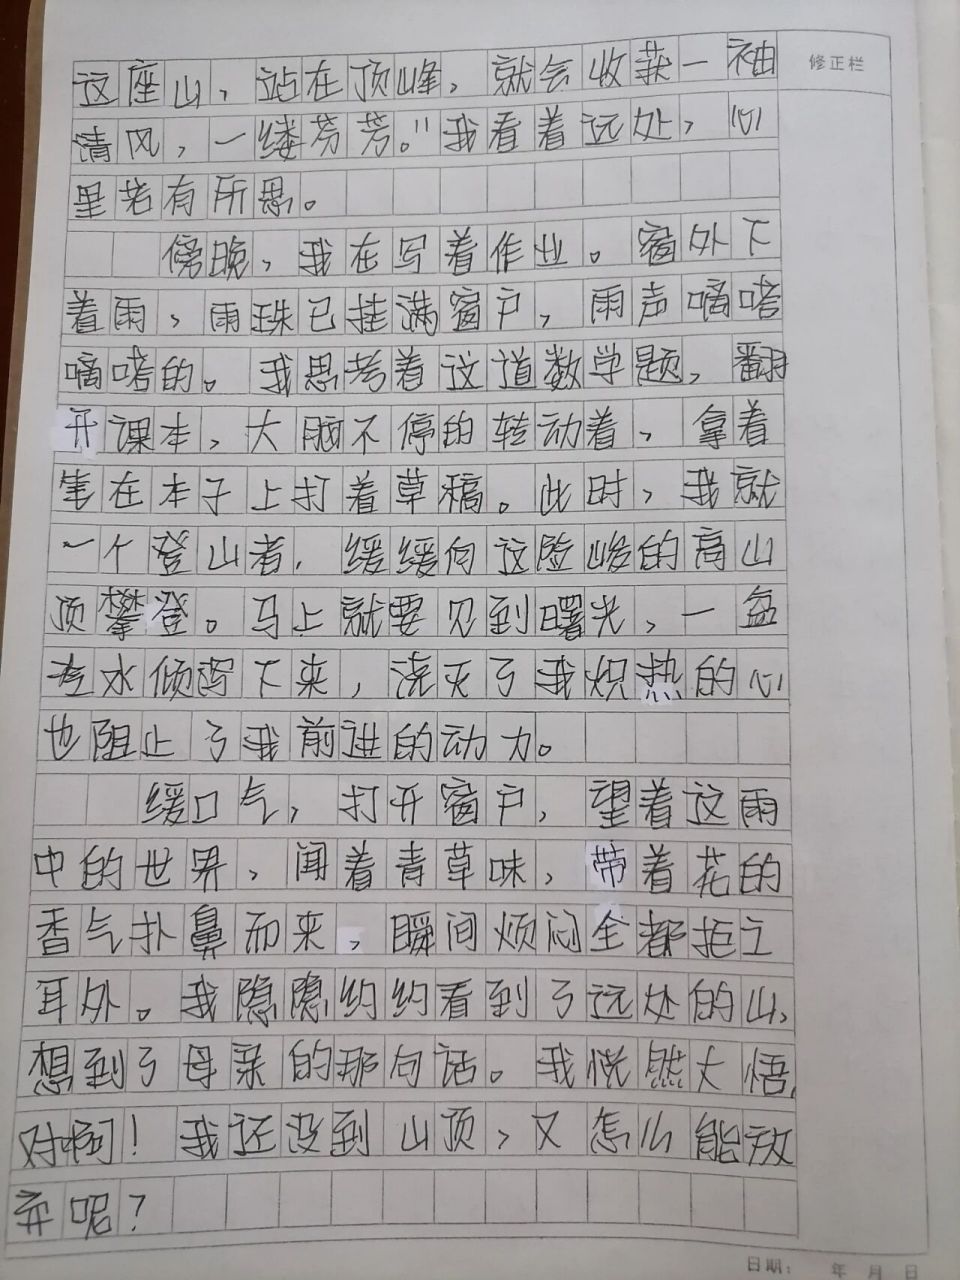 这座山，站在顶峰，就会收获一袖
修正栏
清风，一缕芬芳。"我看着远处，心
里若有所思。
傍晚，我在写着作业。窗外下
着雨，雨珠已挂满窗户，雨声嘀嗒
嘀嗒的。我思考着这道数学题，翻
开课本，大脑不停的转动着，拿着
笔在本子上打着草稿。此时，我就
一个登山者，缓缓向这险峻的高山
顶攀登。马上就要见到曙光，一盆
冷水倾泻下来，浇灭了我炽热的心
也阻止了我前进的动力。
缓口气，打开窗户，望着这雨
中的世界，闻着青草味，带着花的
香气扑鼻而来，瞬间烦闷全都拒之
耳外。我隐隐约约看到了远处的山，
想到了母亲的那句话。我恍然大悟，
对啊！我还没到山顶，又怎么能放
弃呢？
日期：　年　月　日